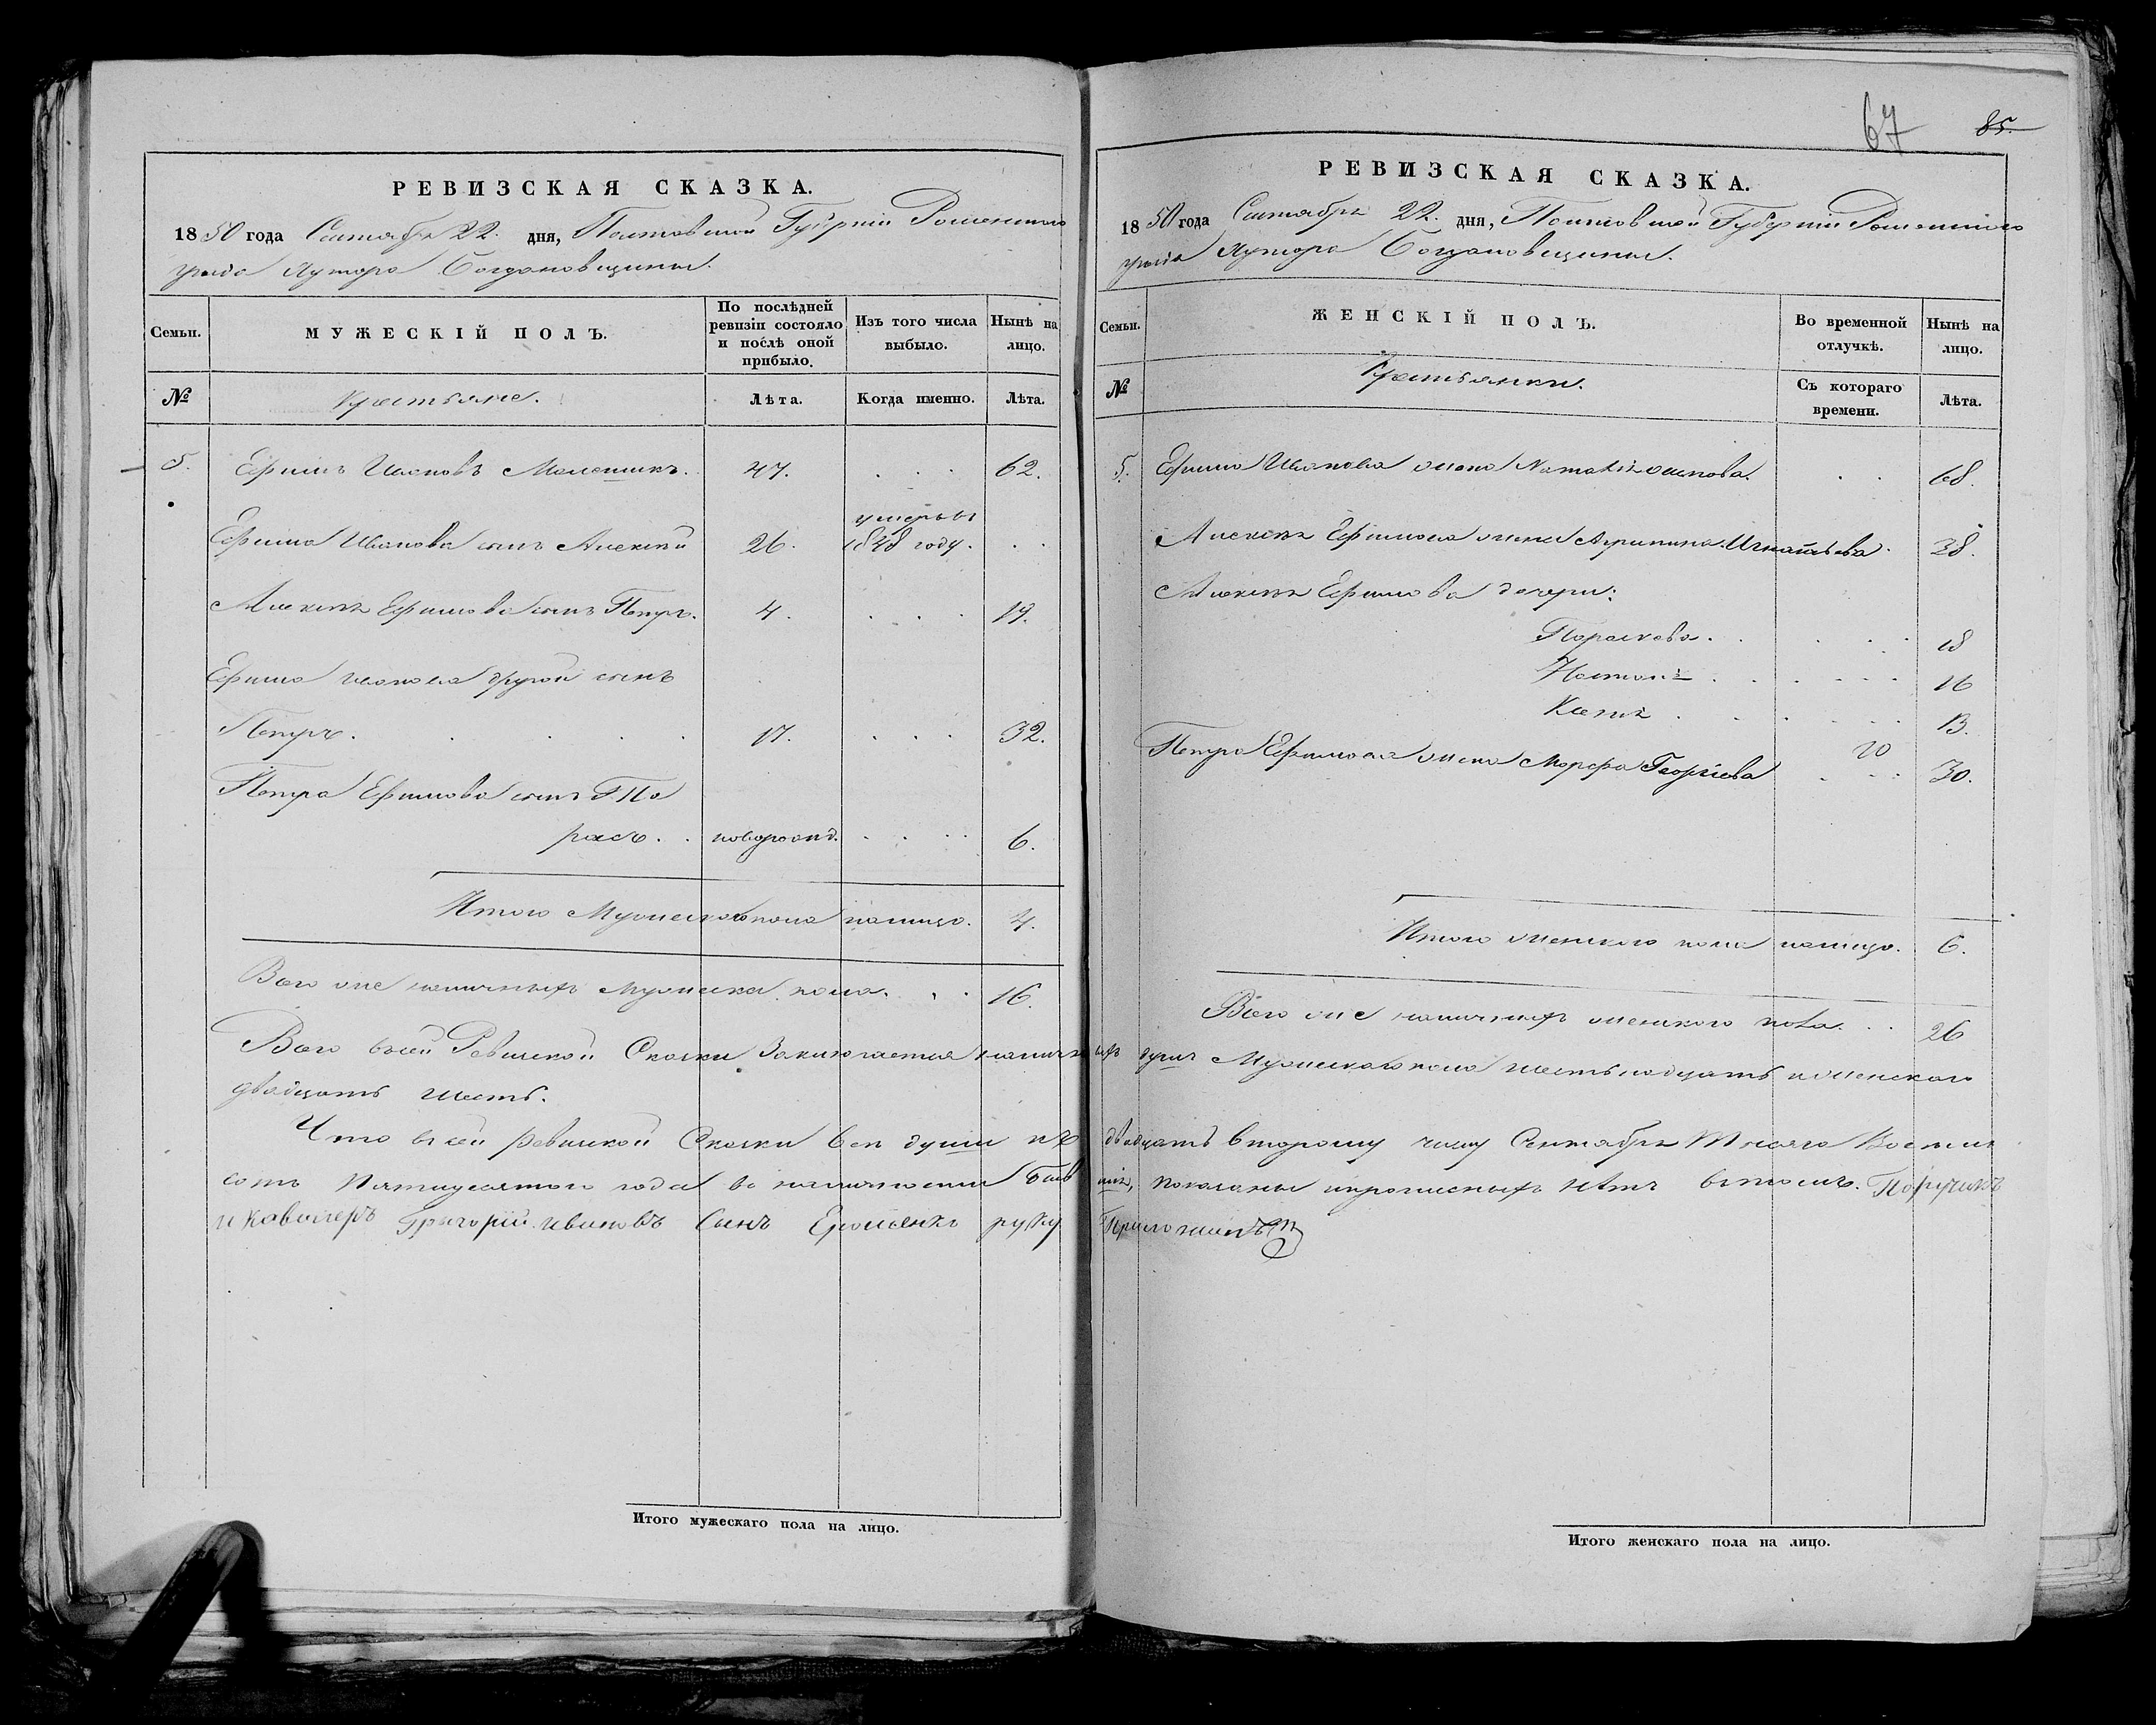 РЕВИЗСКАЯ СКАЗКА.
1850 года Сентября 22. дня, Полтавской Губерніи Роменского
уезда Хутора Богдановщины.
Семьи. МУЖЕСКІЙ ПОЛЪ. По послѣдней ревизіи состояло и послѣ оной прибыло. Изъ того числа выбыло. Нынѣ на лицо.
№ Крестьяне. Лѣта. Когда именно. Лѣта.
5. Ефимъ Ивановъ 47. 62.
умеръ въ
Ефима Иванова сынъ Алексѣй 26. 1848 году.
Алексѣя Ефимова сынъ Петръ. 4. 19.
Ефима Иванова другой сынъ
Петръ. 17. 32.
Петра Ефимова сынъ Та
расъ. новорожд. 6.
Итого Мужескаго пола налицо. 4.
Всего же наличныхъ Мужеска пола. 16.
67 85.
РЕВИЗСКАЯ СКАЗКА.
1850 года Сентября 22. дня, Полтавской Губерніи Роменского
уезда Хутора Богдановщины.
Семьи. ЖЕНСКІЙ ПОЛЪ. Во временной отлучкѣ. Нынѣ на лицо.
№ Крестьянки. Съ котораго времени. Лѣта.
5. Ефима Иванова жена Наталія Осипова. 68.
Алексѣя Ефимова жена Агрипина Игнатьева. 38.
Алексѣя Ефимова дочери:
Параскева. 18
16
13.
20
Петра Ефимова жена Марфа Георгіева 30.
Итого женского пола налицо. 6.
Всего же наличныхъ женского пола. 26
Всего в сей Ревизской Сказки Заключается наличныхъ душъ Мужескаго пола шестьнадцать и женскаго
двадцать шесть.
Что в сей ревизской Сказки все души къ двадцать второму числу Сентября Тысяча Восемь
сотъ Пятидесятого года въ наличности бывшіе, показаны и прописныхъ нѣтъ въ томъ. Поручикъ
и Кавалеръ Григорій Ивановъ Сынъ руку Приложилъ
Итого мужескаго пола на лицо.
Итого женскаго пола на лицо.